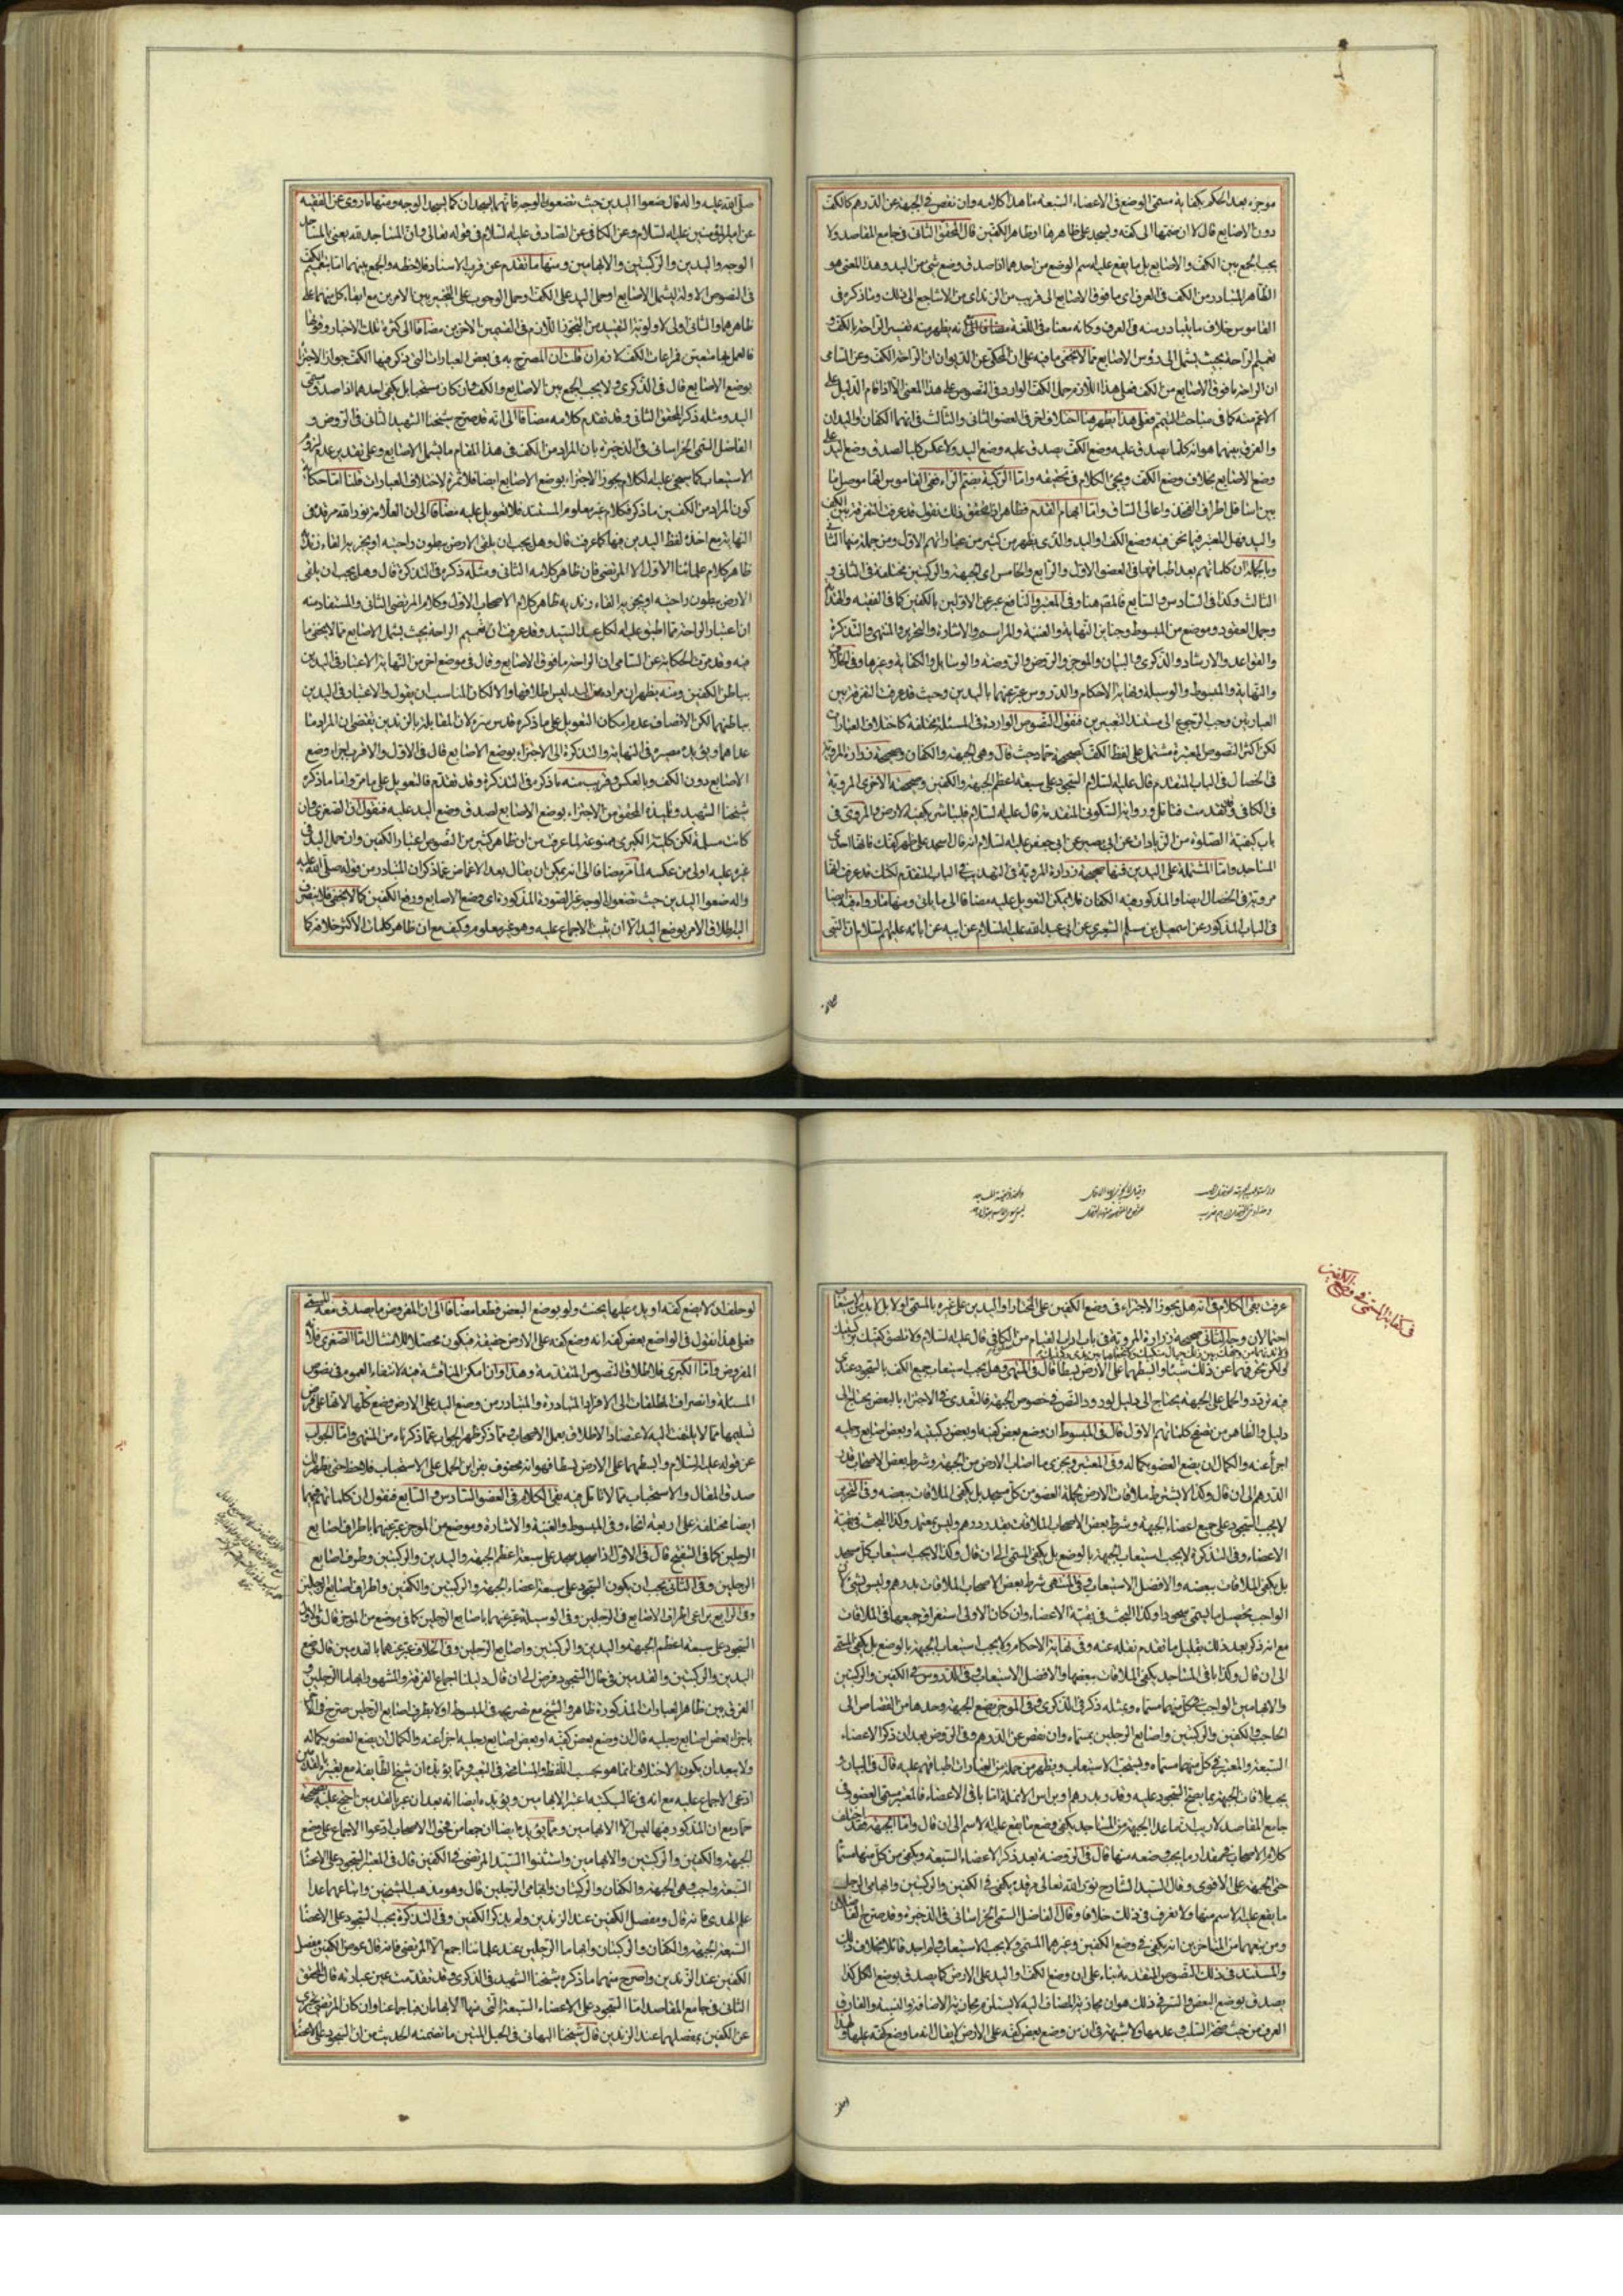 موجزه بعد الحكم بكفاية مسمى الوضع في الاعضاء السبعة هذا كلامه وان نقص في الجبهة عن الدرهم كالكف
دون الاصابع قال لا ان ضمتها الى كفه ويسجد على ظاهرهما او ظاهر الكفين قال المحقق الثاني في جامع المقاصد ولا
يجب الجمع بين الكف والاصابع بل ما يقع عليه اسم الوضع من احدهما اذا صدق وضع شئ من اليد وهذا المعنى هو
الظاهر المتبادر من الكف في العرف اي ما فوق الاصابع الى قريب من الزند اي من الاشاجع الى ذلك وما ذكره في
القاموس خلاف ما يتبادر منه في العرف وكانه معناه في اللغة
ان الراحة ما فوق الاصابع من الكف فعلى هذا اللازم حمل الكف الوارد في النصوص على هذا المعنى الا اذا قام الدليل على
الاعم منه كما في مباحث التيمم فعلى هذا يظهر هنا اختلاف اخر في العضو الثاني والثالث في انهما الكفان او اليدان
والفرق بينهما هو انه كلما يصدق عليه وضع الكف يصدق عليه وضع اليد ولا عكس كليا لصدق وضع اليد على
وضع الاصابع بخلاف وضع الكف ويجئ الكلام في تحقيقه واما الركبة بضم الراء ففي القاموس انها موصل ما
بين اسافل اطراف الفخذ واعالى الساق واما ابهام القدم فظاهر اذا تحقق ذلك نقول قد عرفت الفرق بين الكف
واليد فهل المعتبر فيما نحن فيه وضع الكف او اليد والذي يظهر من كثير من عباراتهم الاول ومن جملة منها الثاني
وبالجملة ان كلماتهم بعد اطباقهما في العضو الاول والرابع والخامس اي الجبهة والركبتين مختلفة في الثاني و
الثالث وكذا في السادس والسابع فالمقنع هنا وفي المعتبر والنافع عبر عن الاولين بالكفين كما في الفقيه والهداية
وجمل العقود وموضع من المبسوط وجنايز النهاية والغنية والمراسم والاشارة والتحرير والمنتهى والتذكرة
والقواعد والارشاد والذكرى والبيان والموجز والروض والروضة والوسائل والكفاية وغيرها وفي الخلاف
والنهاية والمبسوط والوسيلة ونهاية الاحكام والدروس عبر عنهما باليدين وحيث قد عرفت الفرق بين
العبارتين وجب الرجوع الى مستند التعبيرين فنقول النصوص الواردة في المسئلة مختلفة كاختلاف العبارات
لكن اكثر النصوص المعتبرة مشتمل على لفظ الكف كصحيحة حماد حيث قال وهي الجبهة والكفان وصحيحة زرارة المروية
في الخصال في الباب المتقدم قال عليه السلام السجود على سبعة اعظم الجبهة والكفين وصحيحته الاخرى المروية
في الكافي وقد تقدمت فتأمل ورواية السكوني المتقدمة قال عليه السلام فليباشر بكفيه الارض والمروي في
باب كيفية الصلوة من الزيادات عن ابي بصير عن ابي جعفر عليه السلام انه قال اسجد على ظهر كفك فانها احدى
المساجد واما المشتملة على اليدين فمنها صحيحة زرارة المروية في التهذيب في الباب المتقدم لكنك قد عرفت انها
مروية في الخصال ايضا والمذكور فيه الكفان فلا يمكن التعويل عليه مضافا الى ما ياتي ومنها ما رواه فيه ايضا
في الباب المذكور عن اسمعيل بن مسلم الشعيري عن ابي عبد الله عليه السلام عن ابيه عن ابائه عليهم السلام ان النبي
صلى الله عليه واله قال ضعوا اليدين حيث تضعون الوجه فانهما يسجدان كما يسجد الوجه ومنها ما روى عن الفقيه
عن امير المؤمنين عليه السلام وعن الكافي عن الصادق عليه السلام في قوله تعالى وان المساجد لله يعني بالمساجد
الوجه واليدين والركبتين والابهامين ومنها ما تقدم عن قرب الاسناد فلاحظه والجمع بينهما اما بتعميم الكف
في النصوص الاولة ليشمل الاصابع او حمل اليد على الكف او حمل الوجوب على التخيير بين الامرين مع ابقاء كل منهما على
ظاهرهما والثاني اولى
بوضع الاصابع قال في الذكرى ولا يجب الجمع بين الاصابع والكف وان كان مستحبا بل يكفي احدهما اذا صدق مسمى
اليد ومثله ذكر المحقق الثاني وقد تقدم كلامه مضافا الى انه قد صرح شيخنا الشهيد الثاني في الروض و
الفاضل السمى الخراساني في الذخيرة بان المراد من الكف في هذا المقام ما يشمل الاصابع وعلى تقدير عدم لزوم
الاستيعاب كما سيجئ عليه الكلام يجوز الاجتزاء بوضع الاصابع ايضا فلا ثمرة لاختلاف العبارات قلنا اما حكاية
كون المراد من الكفين ما ذكر فكلام غير معلوم المستند فلا تعويل عليه مضافا الى ان العلامة نور الله مرقده في
النهاية مع اخذه لفظ اليدين فيها كما عرفت قال وهل يجب ان يلقى الارض ببطون راحتيه او يجزيه القاء زنديه
ظاهر كلام علمائنا الاول الا المرتضى فان ظاهر كلامه الثاني ومثله ذكره في التذكرة قال وهل يجب ان يلقى
الارض ببطون راحتيه او يجزيه القاء زنديه ظاهر كلام الاصحاب الاول وكلام المرتضى الثاني والمستفاد منه
ان اعتبار الراحة مما اطبق عليه الكل عدا السيد وقد عرفت ان تعميم الراحة بحيث يشمل الاصابع مما لا يخفى ما
فيه وقد مرت الحكاية عن السامي ان الراحة ما فوق الاصابع وقال في موضع اخر من النهاية الاعتبار في اليدين
بباطن الكفين ومنه يظهر ان مراده من اليد ليس اطلاقها والا لكان المناسب ان يقول والاعتبار في اليدين
بباطنهما لكن الانصاف عدم امكان التعويل على ما ذكره قدس سره لان المقابلة بالزندين يقتضي ان المراد ما
عداهما ويؤيده مصيره في النهاية والتذكرة الى الاجتزاء بوضع الاصابع قال في الاول والاقرب اجزاء وضع
الاصابع دون الكف وبالعكس وقريب منه ما ذكره في التذكرة وقد تقدم فالتعويل على ما مر واما ما ذكره
شيخنا الشهيد وتلميذه المحقق من الاجتزاء بوضع الاصابع لصدق وضع اليد عليه فنقول ان الصغرى وان
كانت مسلمة لكن كلية الكبرى ممنوعة لما عرفت من ان ظاهر كثير من النصوص اعتبار الكفين وان حمل اليد في
غيره عليه اولى من عكسه لما مر مضافا الى انه يمكن ان يقال بعد الاغماض عما ذكر ان المتبادر من قوله صلى الله عليه
واله ضعوا اليدين حيث تضعون الوجه غير الصورة المذكورة اي وضع الاصابع ورفع الكفين كما لا يخفى فلا ينصرف
اليه اطلاق الامر بوضع اليد الا ان يثبت الاجماع عليه وهو غير معلوم وكيف مع ان ظاهر كلمات الاكثر خلافه كما
عرفت بقى الكلام في انه هل يجوز الاجتزاء في وضع الكفين على المختار او اليدين على غيره بالمسمى او لا بل لا بد من الاستيعاب
احتمالان وجه الثاني صحيحة زرارة المروية في باب اداب القيام من الكافي قال عليه السلام ولا تلصق كفيك بركبتيك
فيه تردد والحمل على الجبهة يحتاج الى دليل لورود النص في خصوص الجبهة فالتعدي في الاجتزاء بالبعض يحتاج الى
دليل والظاهر من تصفح كلماتهم الاول قال في المبسوط ان وضع بعض كفيه او بعض ركبتيه او بعض اصابع رجليه
اجزأ عنه والكمال ان يضع العضو بكماله وفي المعتبر ويجزي ما اصاب الارض من الجبهة وشرط بعض الاصحاب قدر
الدرهم الى ان قال وكذا لا يشترط ملاقات الارض بجملة العضو من كل مسجد بل يكفي الملاقات ببعضه وفي التحرير
لا يجب السجود على جميع اعضاء الجبهة وشرط بعض الاصحاب الملاقات بقدر درهم وليس بمعتمد وكذا البحث في بقية
الاعضاء وفي التذكرة لا يجب استيعاب الجبهة بالوضع بل يكفي المسمى الى ان قال وكذا لا يجب استيعاب كل مسجد
بل يكفي الملاقات ببعضه والافضل الاستيعاب وفي المنتهى شرط بعض الاصحاب الملاقات بدرهم وليس بشئ لان
الواجب يحصل ما يسمى سجودا وكذا البحث في بقية الاعضاء وان كان الاولى استغراق جميعها في الملاقات
مع انه ذكر بعد ذلك بقليل ما تقدم نقله عنه وفي نهاية الاحكام ولا يجب استيعاب الجبهة بالوضع بل يكفي المسمى
الى ان قال وكذا باقي المساجد يكفي الملاقات ببعضها والافضل الاستيعاب وفي الدروس في الكفين والركبتين
والابهامين الواجب في كل منها مسماه ومثله ذكر في الذكرى وفي الموجز يضع الجبهة وحدها من القصاص الى
الحاجب والكفين والركبتين واصابع الرجلين بمسماه وان نقص عن الدرهم وفي الروض بعد ان ذكر الاعضاء
السبعة والمعتبر في كل منها مسماه ويستحب الاستيعاب ويظهر من جملة من العبارات اطباقهم عليه قال في البيان و
يجب ملاقات الجبهة بما يصح السجود عليه وقدر بدرهم وبراس الانملة اما باقي الاعضاء فالمعتبر مسمى العضو وفي
جامع المقاصد لا ريب ان ما عدا الجبهة من المساجد يكفي وضع ما يقع عليه الاسم الى ان قال واما الجبهة فقد اختلف
كلام الاصحاب في مقدار ما يجب وضعه منها قال في الروضة بعد ذكر الاعضاء السبعة ويكفي من كل منها مسماه
حتى الجبهة على الاقوى وقال السيد الشارح نور الله تعالى مرقده يكفي في الكفين والركبتين وابهامي الرجلين
ما يقع عليه الاسم منها ولا نعرف في ذلك خلافا وقال الفاضل السمى الخراساني في الذخيرة وقد صرح الفاضلان
ومن تبعهما من المتاخرين انه يكفي في وضع الكفين وغيرهما المسمى ولا يجب الاستيعاب ولم اجد قائلا بخلاف ذلك
والمستند في ذلك النصوص المتقدمة بناء على ان وضع الكف او اليد على الارض كما يصدق بوضع الكل كذا
يصدق بوضع البعض والسر في ذلك هو ان مجازية المضاف اليه لا يستلزم مجازية الاضافة والنسبة والفارق
العرف من حيث صحة السلب وعدمها ولا شبهة في ان من وضع بعض كفه على الارض لا يقال انه ما وضع كفه عليها
لو حلف ان لا يضع كفه او يده عليها يحنث ولو بوضع البعض قطعا مضافا الى ان المفروض ما يصدق معه المسمى
فعلى هذا نقول في الواضع بعض كفه انه وضع كفه على الارض حقيقة فيكون محصلا للامتثال اما الصغرى فلانه
المفروض واما الكبرى فلاطلاق النصوص المتقدمة وهذا وان امكن المناقشة فيه لانتفاء العموم في نصوص
المسئلة وانصراف المطلقات الى الافراد المتبادرة والمتبادر من وضع اليد على الارض وضع كلها الا انها على فرض
تسليمها مما لا يلتفت اليه لاعتضاد الاطلاق بعمل الاصحاب ومما ذكر ظهر الجواب عما ذكرناه من المنتهى واما الجواب
عن قوله عليه السلام وابسطهما على الارض بسطا فهو انه محفوف بقراين الحمل على الاستحباب فلاحظ حتى يظهر لك
صدق المقال والاستحباب مما لا تامل فيه بقى الكلام في العضو السادس والسابع فنقول ان كلماتهم فيهما
ايضا مختلفة على اربعة انحاء وفي المبسوط والغنية والاشارة وموضع من الموجز عبر عنهما باطراف اصابع
الرجلين كما في التنقيح قال في الاول اذا سجد سجد على سبعة اعظم الجبهة واليدين والركبتين وطرف اصابع
الرجلين وفي الثاني يجب ان يكون السجود على سبعة اعضاء الجبهة والركبتين والكفين واطراف اصابع الرجلين
وفي الرابع يراعى اطراف الاصابع في الرجلين وفي الوسيلة عبر عنهما باصابع الرجلين كما في موضع من الموجز قال في الاول
السجود على سبعة اعظم الجبهة واليدين والركبتين واصابع الرجلين وفي الخلاف عبر عنهما بالقدمين قال وضع
اليدين والركبتين والقدمين في حال السجود فرض الى ان قال دليلنا اجماع الفرقة والمشهور ابهاما الرجلين و
الفرق بين ظاهر العبارات المذكورة ظاهر والشيخ مع تصريحه في المبسوط اولا بطرف اصابع الرجلين صرح فيه ايضا
باجزاء بعض اصابع رجليه قال ان وضع بعض كفيه او بعض اصابع رجليه اجزأ عنه والكمال ان يضع العضو بكماله
ولا يبعد ان يكون الاختلاف انما هو بحسب اللفظ والمسامحة في التعبير ومما يؤيده ان شيخ الطائفة مع تعبيره بالقدمين
ادعى الاجماع عليه مع انه في غالب كتبه اعتبر الابهامين ويؤيده ايضا انه بعد ان عبر بالقدمين احتج عليه بصحيحة
حماد مع ان المذكور فيها ليس الا الابهامين ومما يؤيده ايضا ان جماعة من فحول الاصحاب ادعوا الاجماع على وضع
الجبهة والكفين والركبتين والابهامين واستثنوا السيد المرتضى في الكفين قال في المعتبر السجود على الاعضاء
السبعة واجب وهي الجبهة والكفان والركبتان وابهامي الرجلين قال وهو مذهب الشيخين واتباعهما عدا
علم الهدى فانه قال ومفصل الكفين عند الزندين ولم يذكر الكفين وفي التذكرة يجب السجود على الاعضاء
السبعة الجبهة والكفان والركبتان وابهاما الرجلين عند علمائنا اجمع الا المرتضى فانه قال عوض الكفين مفصل
الكفين عند الزندين واصرح منهما ما ذكره شيخنا الشهيد في الذكرى وقد تقدمت عين عبارته قال المحقق
الثاني في جامع المقاصد اما السجود على الاعضاء السبعة التي منها الابهامان فباجماعنا وان كان المرتضى يجتزي
عن الكفين بمفصلهما عند الزندين قال شيخنا البهائي في الحبل المتين ما تضمنه الحديث من ان السجود على الاعضاء